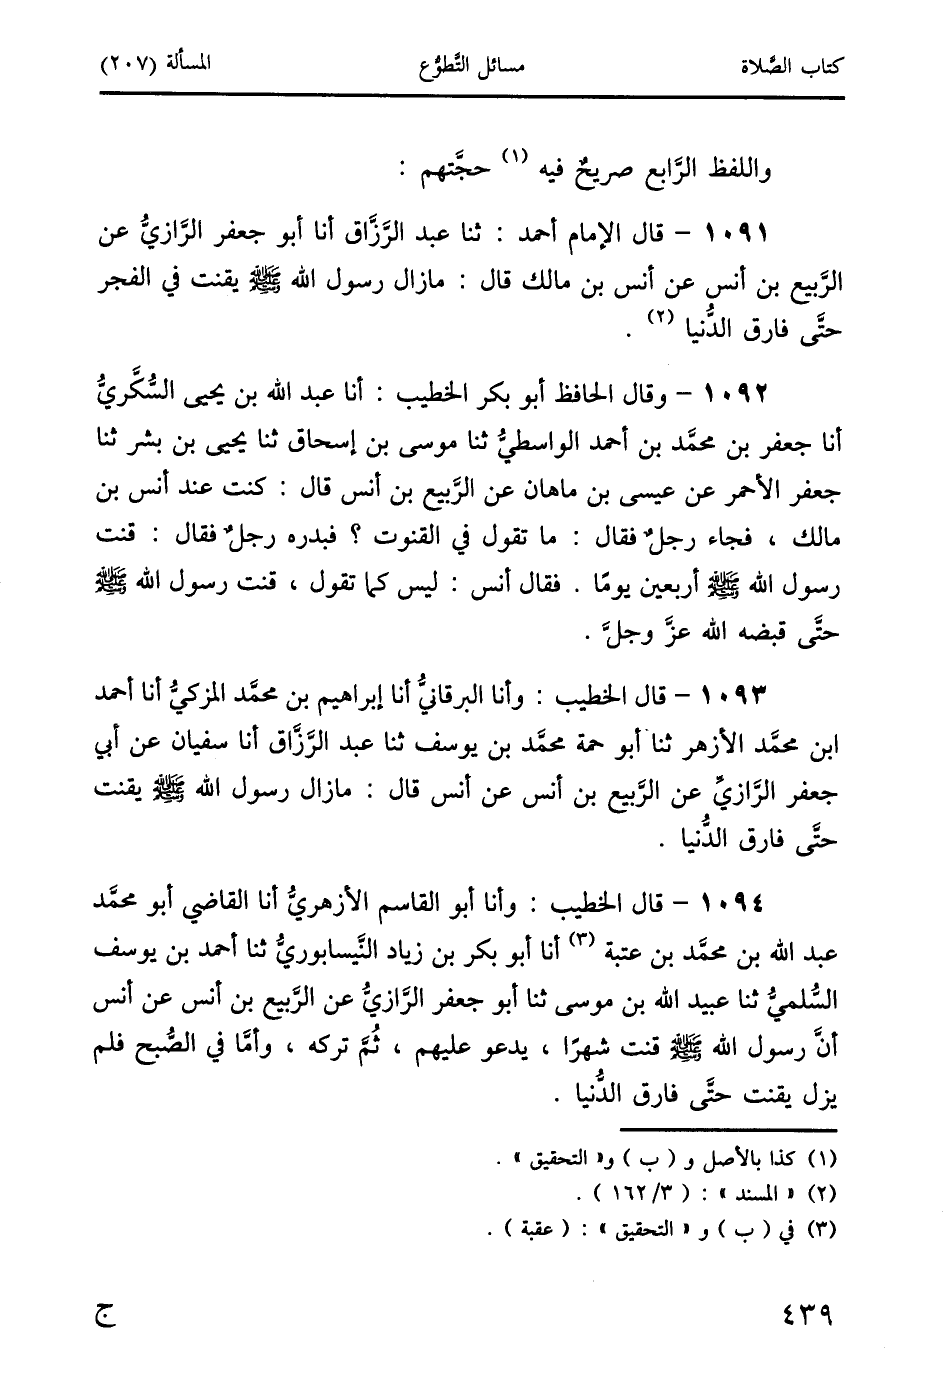 كتاب الصَّلاة مسائل التَّطوُّع المسألة (٢٠٧)
واللفظ الرَّابع صريحٌ فيه (١) حجَّتهم :
١٠٩١ - قال الإمام أحمد : ثنا عبد الرَّزَّاق أنا أبو جعفر الرَّازيُّ عن
الرَّبيع بن أنس عن أنس بن مالك قال : مازال رسول الله ﷺ يقنت في الفجر
حتَّى فارق الدُّنيا (٢) .
١٠٩٢ - وقال الحافظ أبو بكر الخطيب : أنا عبد الله بن يحيى السُّكَّريُّ
أنا جعفر بن محمَّد بن أحمد الواسطيُّ ثنا موسى بن إسحاق ثنا يحيى بن بشر ثنا
جعفر الأحمر عن عيسى بن ماهان عن الرَّبيع بن أنس قال : كنت عند أنس بن
مالك ، فجاء رجلٌ فقال : ما تقول في القنوت ؟ فبدره رجلٌ فقال : قنت
رسول الله ﷺ أربعين يومًا . فقال أنس : ليس كما تقول ، قنت رسول الله ﷺ
حتَّى قبضه الله عزَّ وجلَّ .
١٠٩٣ - قال الخطيب : وأنا البرقانيُّ أنا إبراهيم بن محمَّد المزكيُّ أنا أحمد
ابن محمَّد الأزهر ثنا أبو حمة محمَّد بن يوسف ثنا عبد الرَّزَّاق أنا سفيان عن أبي
جعفر الرَّازيِّ عن الرَّبيع بن أنس عن أنس قال : مازال رسول الله ﷺ يقنت
حتَّى فارق الدُّنيا .
١٠٩٤ - قال الخطيب : وأنا أبو القاسم الأزهريُّ أنا القاضي أبو محمَّد
عبد الله بن محمَّد بن عتبة (٣) أنا أبو بكر بن زياد النَّيسابوريُّ ثنا أحمد بن يوسف
السُّلميُّ ثنا عبيد الله بن موسى ثنا أبو جعفر الرَّازيُّ عن الرَّبيع بن أنس عن أنس
أنَّ رسول الله ﷺ قنت شهرًا ، يدعو عليهم ، ثُمَّ تركه ، وأمَّا في الصُّبح فلم
يزل يقنت حتَّى فارق الدُّنيا .
(١) كذا بالأصل و ( ب ) و« التحقيق » .
(٢) « المسند » : ( ٣/ ١٦٢ ) .
(٣) في ( ب ) و « التحقيق » : ( عقبة ) .
٤٣٩ ج